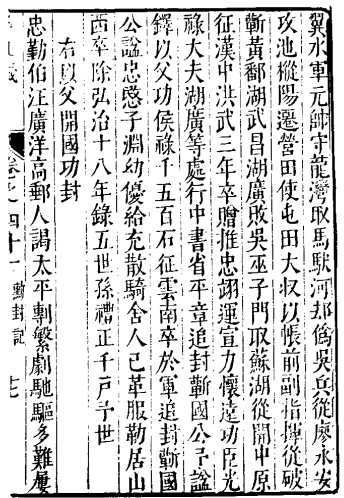 翼水軍元帥守龍灣取馬䭾河却僞吳兵從廖永安
攻池樅陽遷營田使屯田大収以帳前副指揮從破
蘄黃鄱湖武昌湖廣敗吳巫子門取蘇湖從開中原
征漢中洪武三年卒贈推忠翊運宣力懷遠功臣光
祿大夫湖廣等處行中書省平章追封蘄國公予諡
鐸以父功侯祿千五百石征雲南卒於軍追封蘄國
公諡忠愍子淵幼優給充散騎舍人已革服勒居山
西卒除弘治十八年錄五世孫禮正千戸予世
右以父開國功封
忠勤伯汪廣洋高郵人謁太平剸繁劇馳驅多難屢
卷之四十一 勳封記 十七